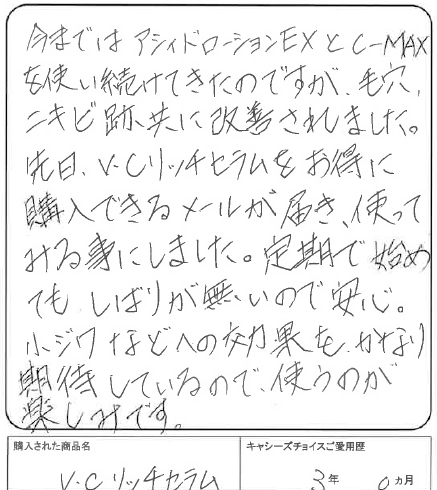 今まではアシィドローションEXとC-MAX
を使い続けてきたのですが、毛穴、
ニキビ跡共に改善されました。
先日、V・Cリッチセラムをお得に
購入できるメールが届き、使って
みる事にしました。定期で始め
てもしばりが無いので安心。
小ジワなどへの効果を、かなり
期待しているので、使うのが
楽しみです。
購入された商品名 キャシーズチョイスご愛用歴
V・Cリッチセラム 3年 0ヵ月